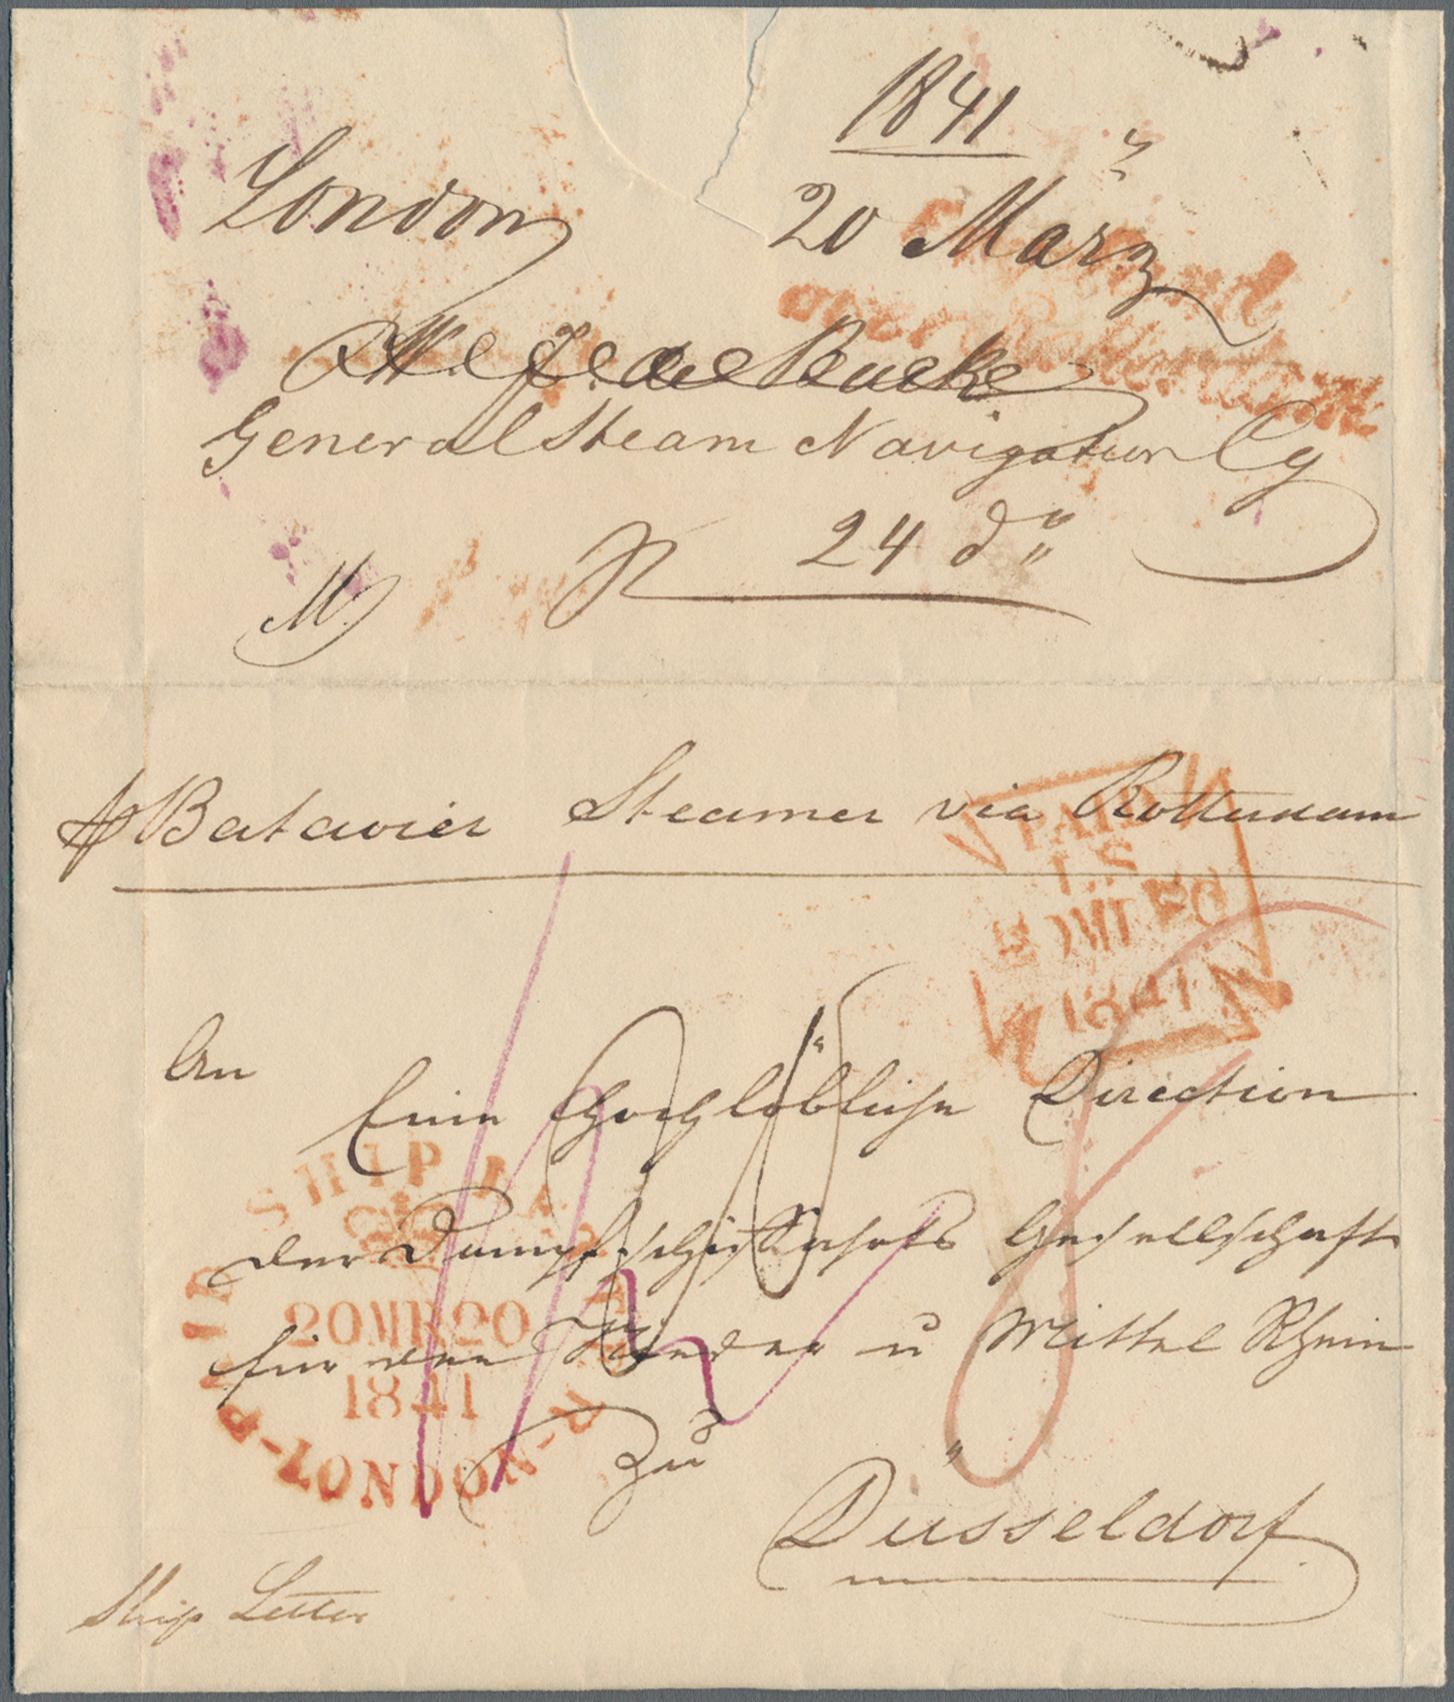 1841
London 20 März
General Steam Navigation Cy
24 d
M
p Batavier Steamer via Rotterdam
PAID
LS
20MR20
1841
An
Eine Hochlöbliche Direction
der Dampfschiffahrts Gesellschaft
für den Nieder u Mittel Rhein
zu
Düsseldorf
PAID SHIP LETTER-LONDON
20MR20
1841
Ship Letter